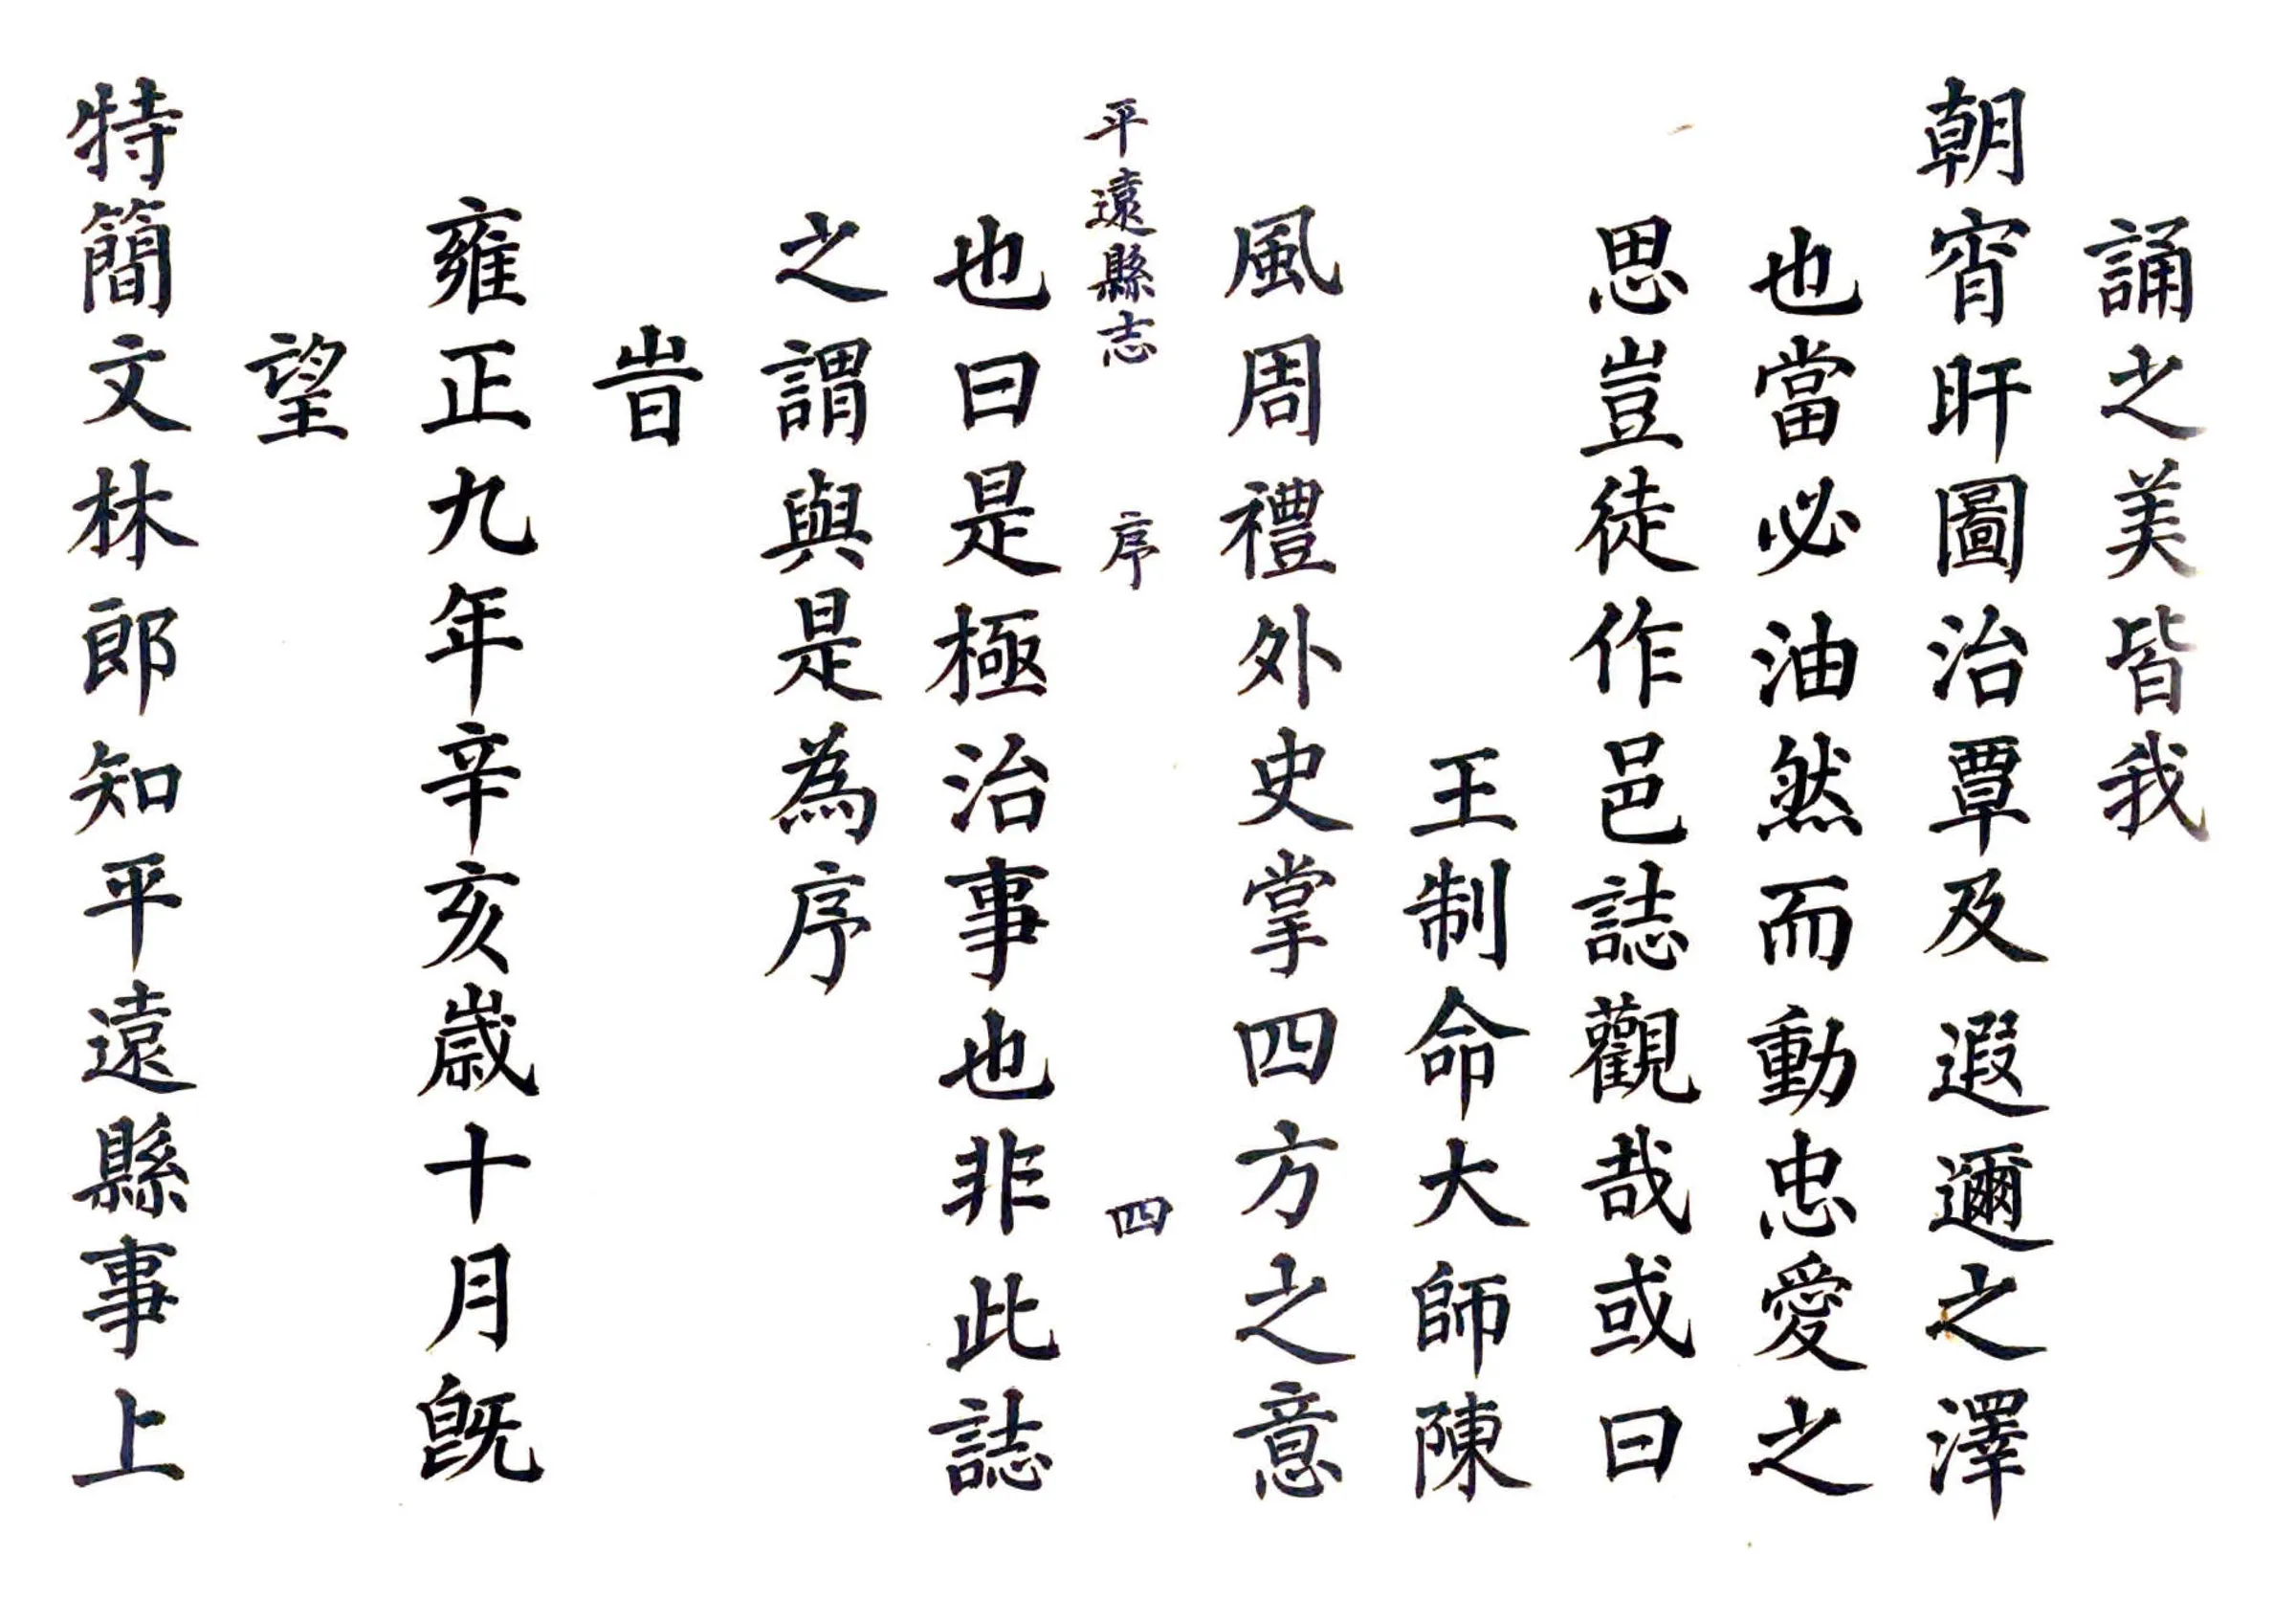 誦之美皆我
朝宵旰圖治覃及遐邇之澤
也當必油然而動忠愛之
思豈徒作邑誌觀哉或曰
王制命大師陳
風周禮外史掌四方之意
平遠縣志 序 四
也曰是極治事也非此誌
之謂與是為序
旹
雍正九年辛亥歲十月既
望
特簡文林郎知平遠縣事上